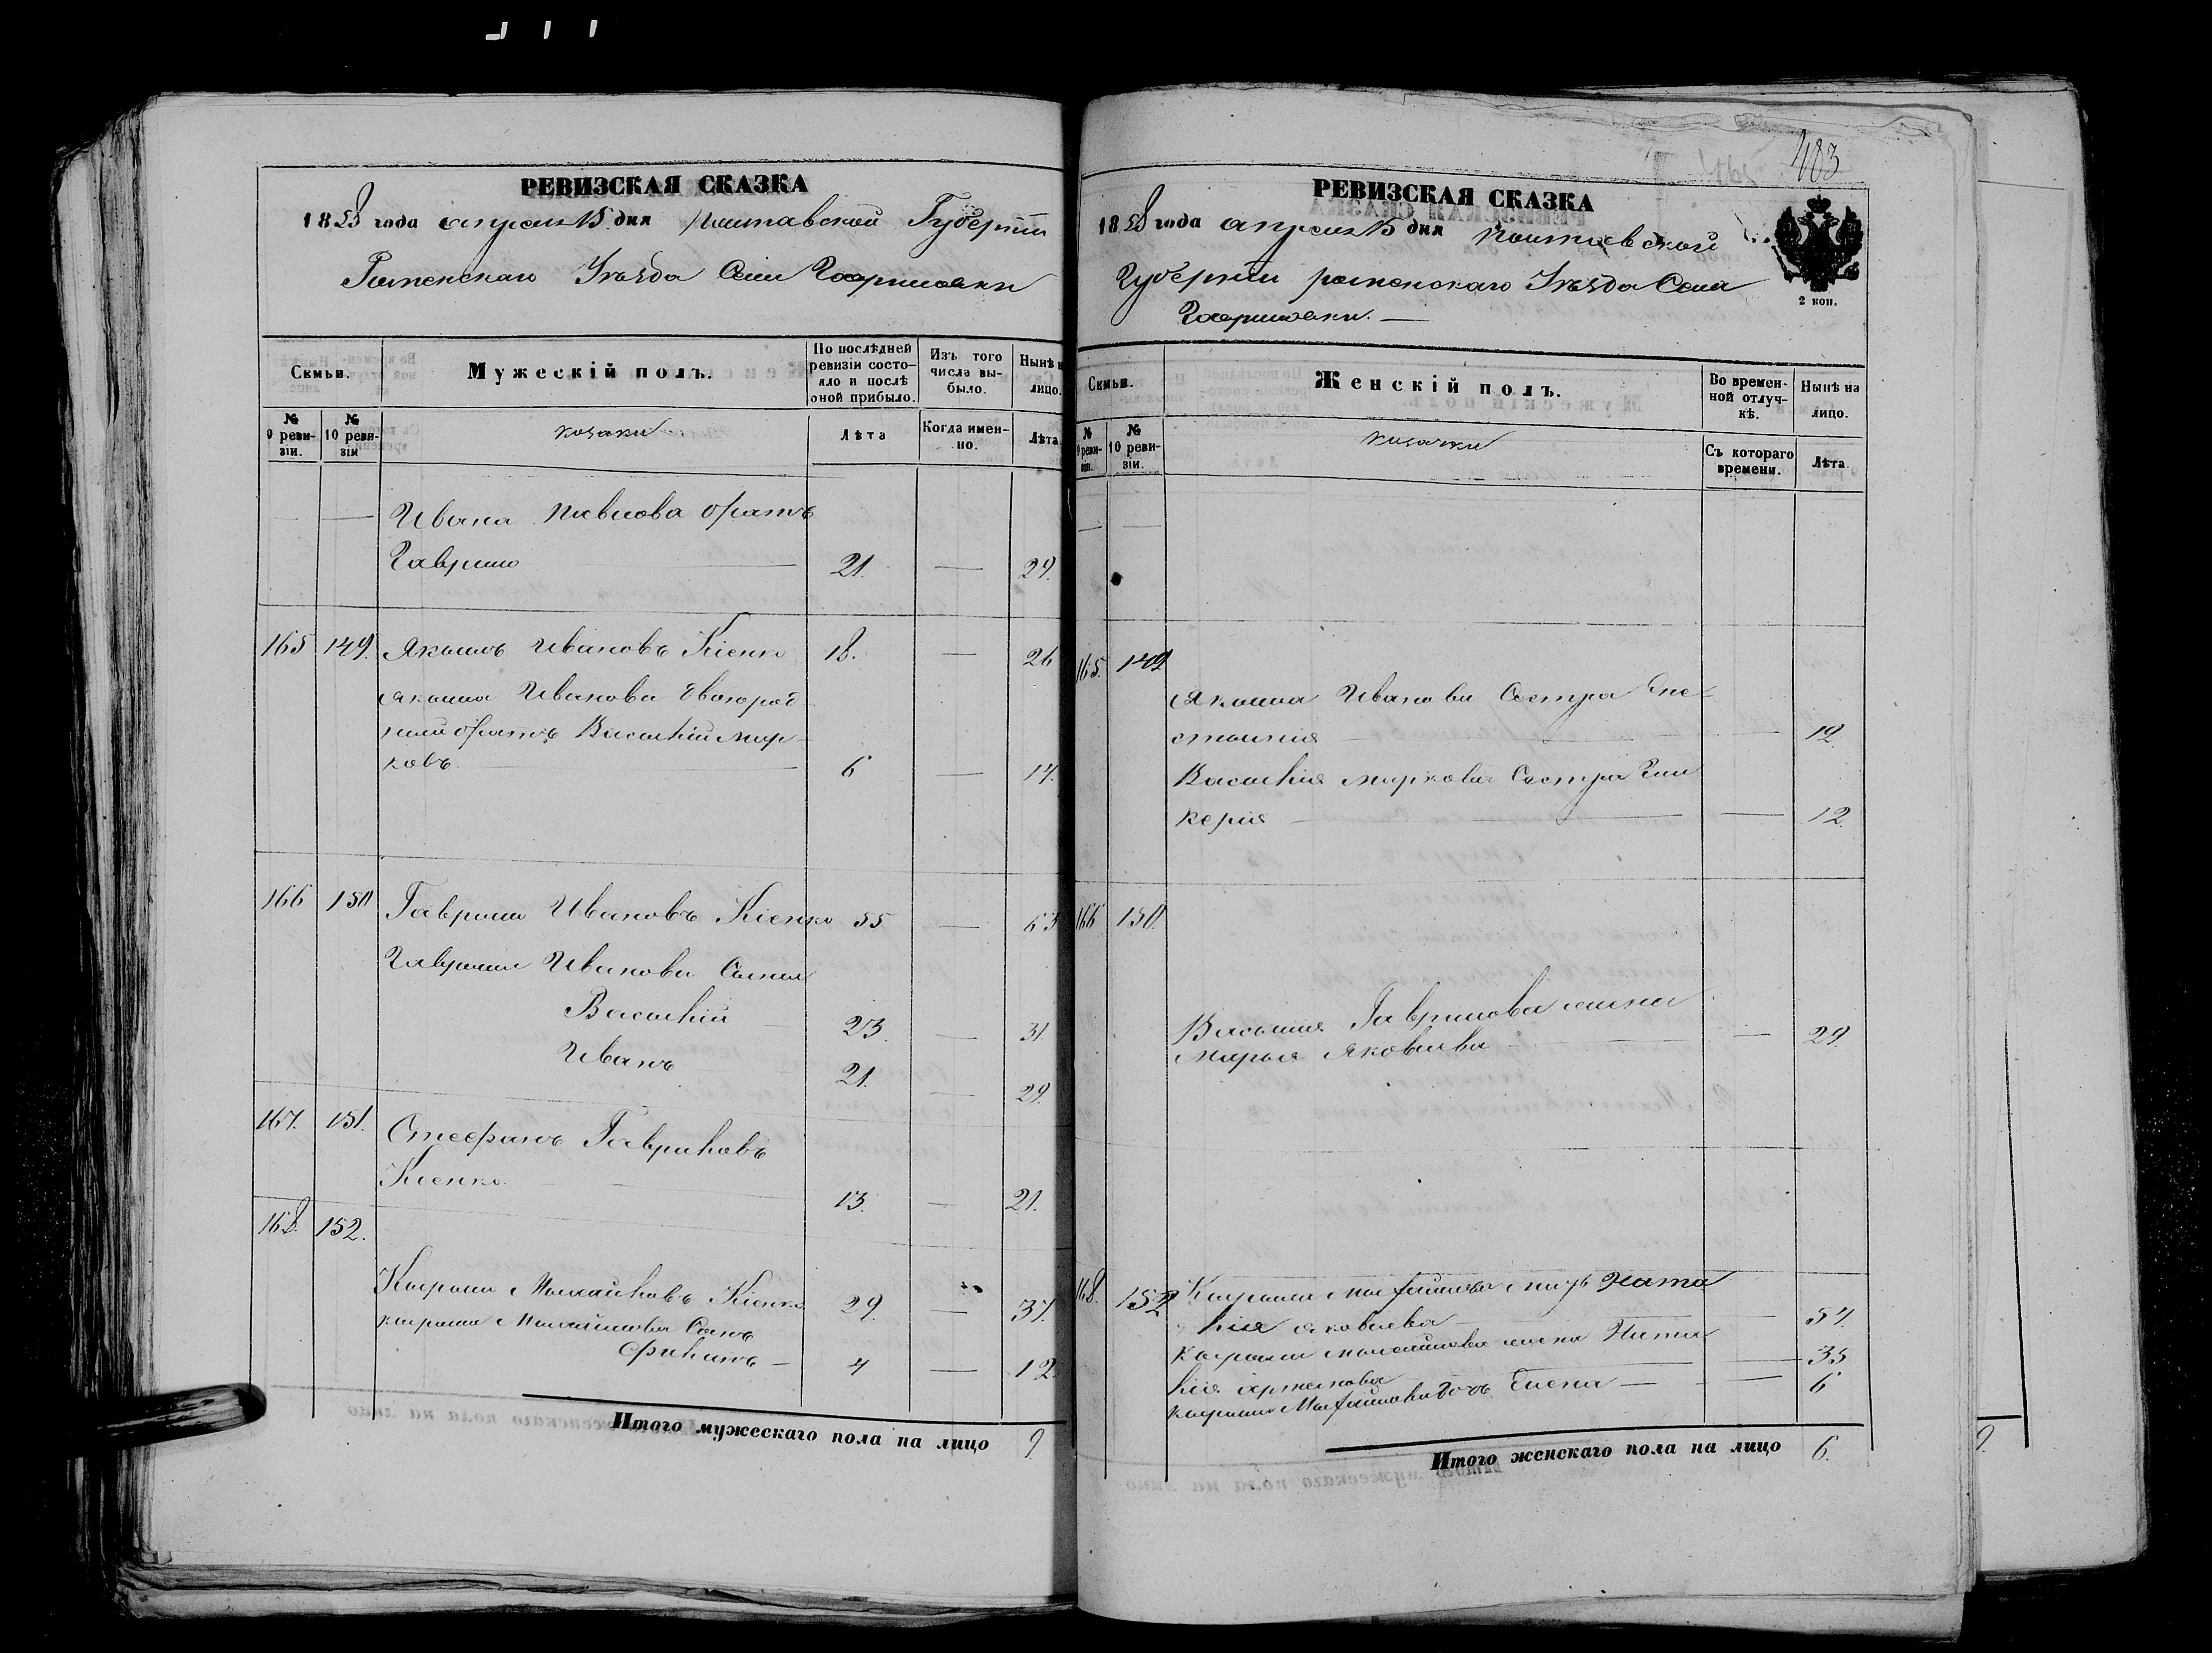 РЕВИЗСКАЯ СКАЗКА
1858 года апреля 15 дня Полтавской Губернии
Роменскаго Уезда Села Гавриловки
Семьи.
Мужескій полъ.
По послѣдней ревизіи состояло и послѣ оной прибыло.
Изъ того числа выбыло.
Нынѣ на лицо.
№ 9 ревизіи.
№ 10 ревизіи
козаки
Лѣта
Когда именно.
Лѣта
— — Ивана Павлова братъ
Гаврило 21. — 29.
165 149. Якимъ Ивановъ Кіенко 18. — 26
Якима Иванова двоюрод
ный братъ Василій Мар
ковъ. 6 — 14.
166 150 Гаврило Ивановъ Кіенко 55 — 63
Гаврила Иванова Сыны
Василій 23. — 31.
Иванъ 21. — 29.
167. 151. Стефанъ Гавриловъ
Кіенко 13. — 21.
168. 152.
Кирило Михайловъ Кіенко 29. — 37.
Кирила Михайлова Сынъ
Филипъ — 4 — 12
Итого мужескаго пола на лицо 9.
483
РЕВИЗСКАЯ СКАЗКА
1858 года апреля 15 дня Полтавской
Губернии роменскаго Уезда Села
Гавриловки. —
2 коп.
Семьи.
Женскій полъ.
Во временной отлучкѣ.
Нынѣ на лицо.
№ 9 ревизіи.
№ 10 ревизіи.
козачки
Съ котораго времени.
Лѣта.
— —
165. 149
Якима Иванова Сестра
— 19.
Василія Маркова Сестра Гли
керія — 12.
166 150.
Василия Гаврилова жена
Марья Яковлева — 29.
168. 152 Кирила Михайлова мать Ната
лія Яковлева — 54.
Кирила Михайлова жена Ната
лія — 35
Кирила Михайлова дочь Елена — — 6
Итого женскаго пола на лицо 6.
9.